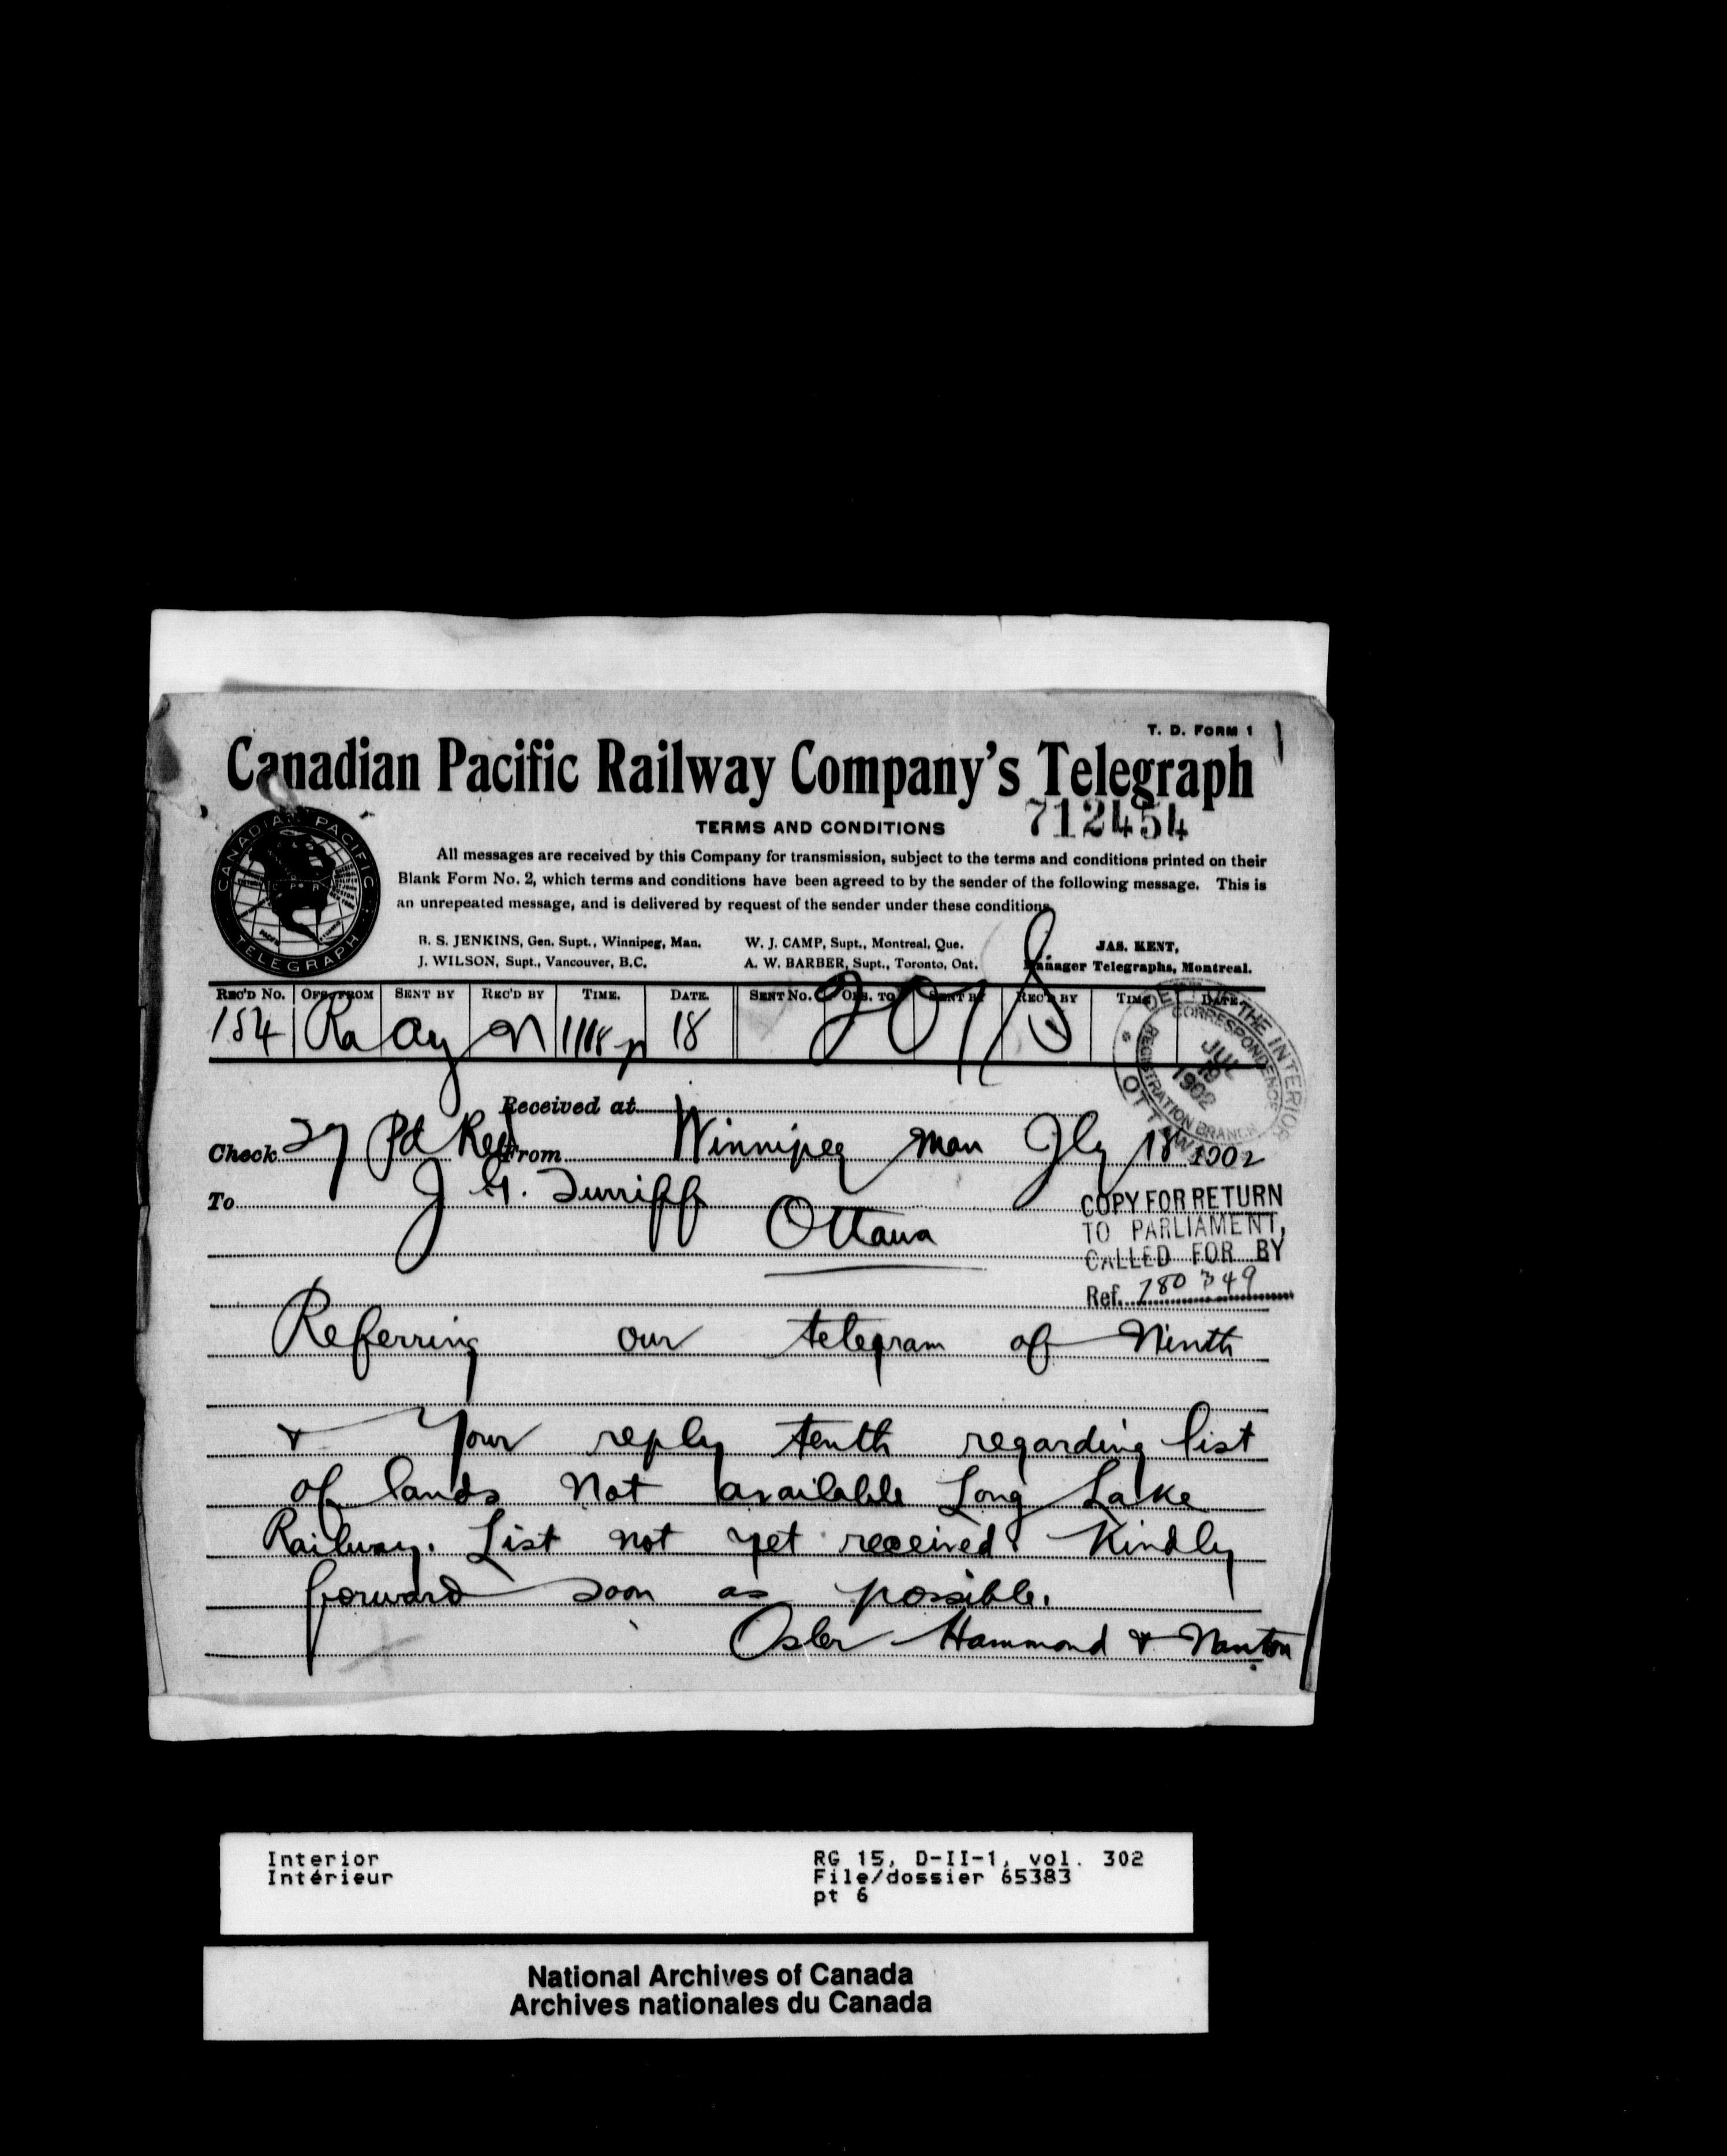 T. D. FORM 1
Canadian Pacific Railway Company's Telegraph
712454
TERMS AND CONDITIONS
All messages are received by this Company for transmission, subject to the terms and conditions printed on their
Blank Form No. 2, which terms and conditions have been agreed to by the sender of the following message. This is
an unrepeated message, and is delivered by request of the sender under these conditions.
CANADIAN PACIFIC
TELEGRAPH
B. S. JENKINS, Gen. Supt., Winnipeg, Man. W. J. CAMP, Supt., Montreal, Que. JAS. KENT,
J. WILSON, Supt., Vancouver, B.C. A. W. BARBER, Supt., Toronto, Ont. Manager Telegraphs, Montreal.
REC'D No. OFS. FROM SENT BY REC'D BY TIME. DATE. SENT No. OFS. TO SENT BY REC'D BY TIME DATE
184 Ra ay 1118 p 18
THE INTERIOR
CORRESPONDENCE
REGISTRATION BRANCH
JUL
19
1902
OTTAWA
Received at
Check 27 Pd From Winnipeg Man Jly 18 1902
To J. G. Turriff
Ottawa
COPY FOR RETURN
TO PARLIAMENT,
CALLED FOR BY
Ref. 780349
Referring our telegram of Ninth
& Your reply tenth regarding list
of lands Not available Long Lake
Railway. List not yet received. Kindly
forward soon as possible.
Osler Hammond & Nanton
Interior RG 15, D-II-1, vol. 302
Intérieur File/dossier 65383
pt 6
National Archives of Canada
Archives nationales du Canada